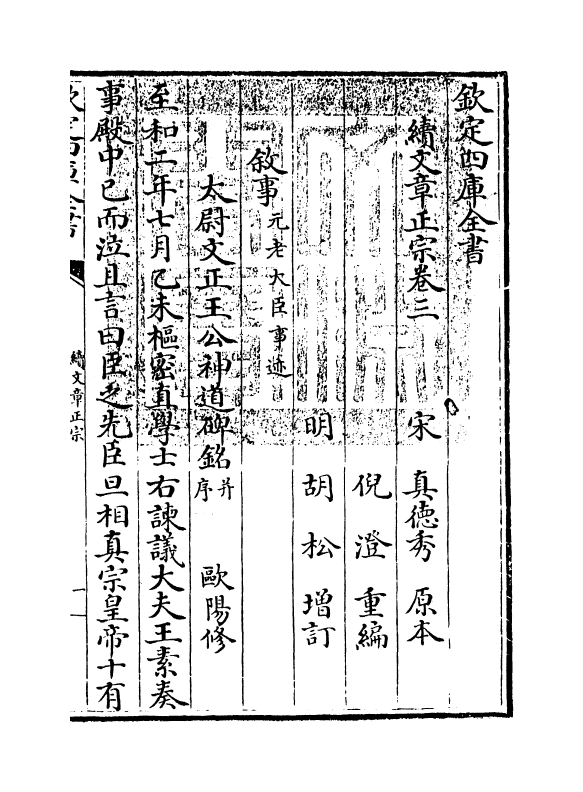 欽定四庫全書
續文章正宗卷三
宋　真德秀　原本
倪澄　重編
明　胡松　增訂
敘事元老大臣事迹
太尉文正王公神道碑銘并序　歐陽修
至和二年七月乙未樞密直學士右諫議大夫王素奏
事殿中已而泣且言曰臣之先臣旦相真宗皇帝十有
欽定四庫全書
續文章正宗
一